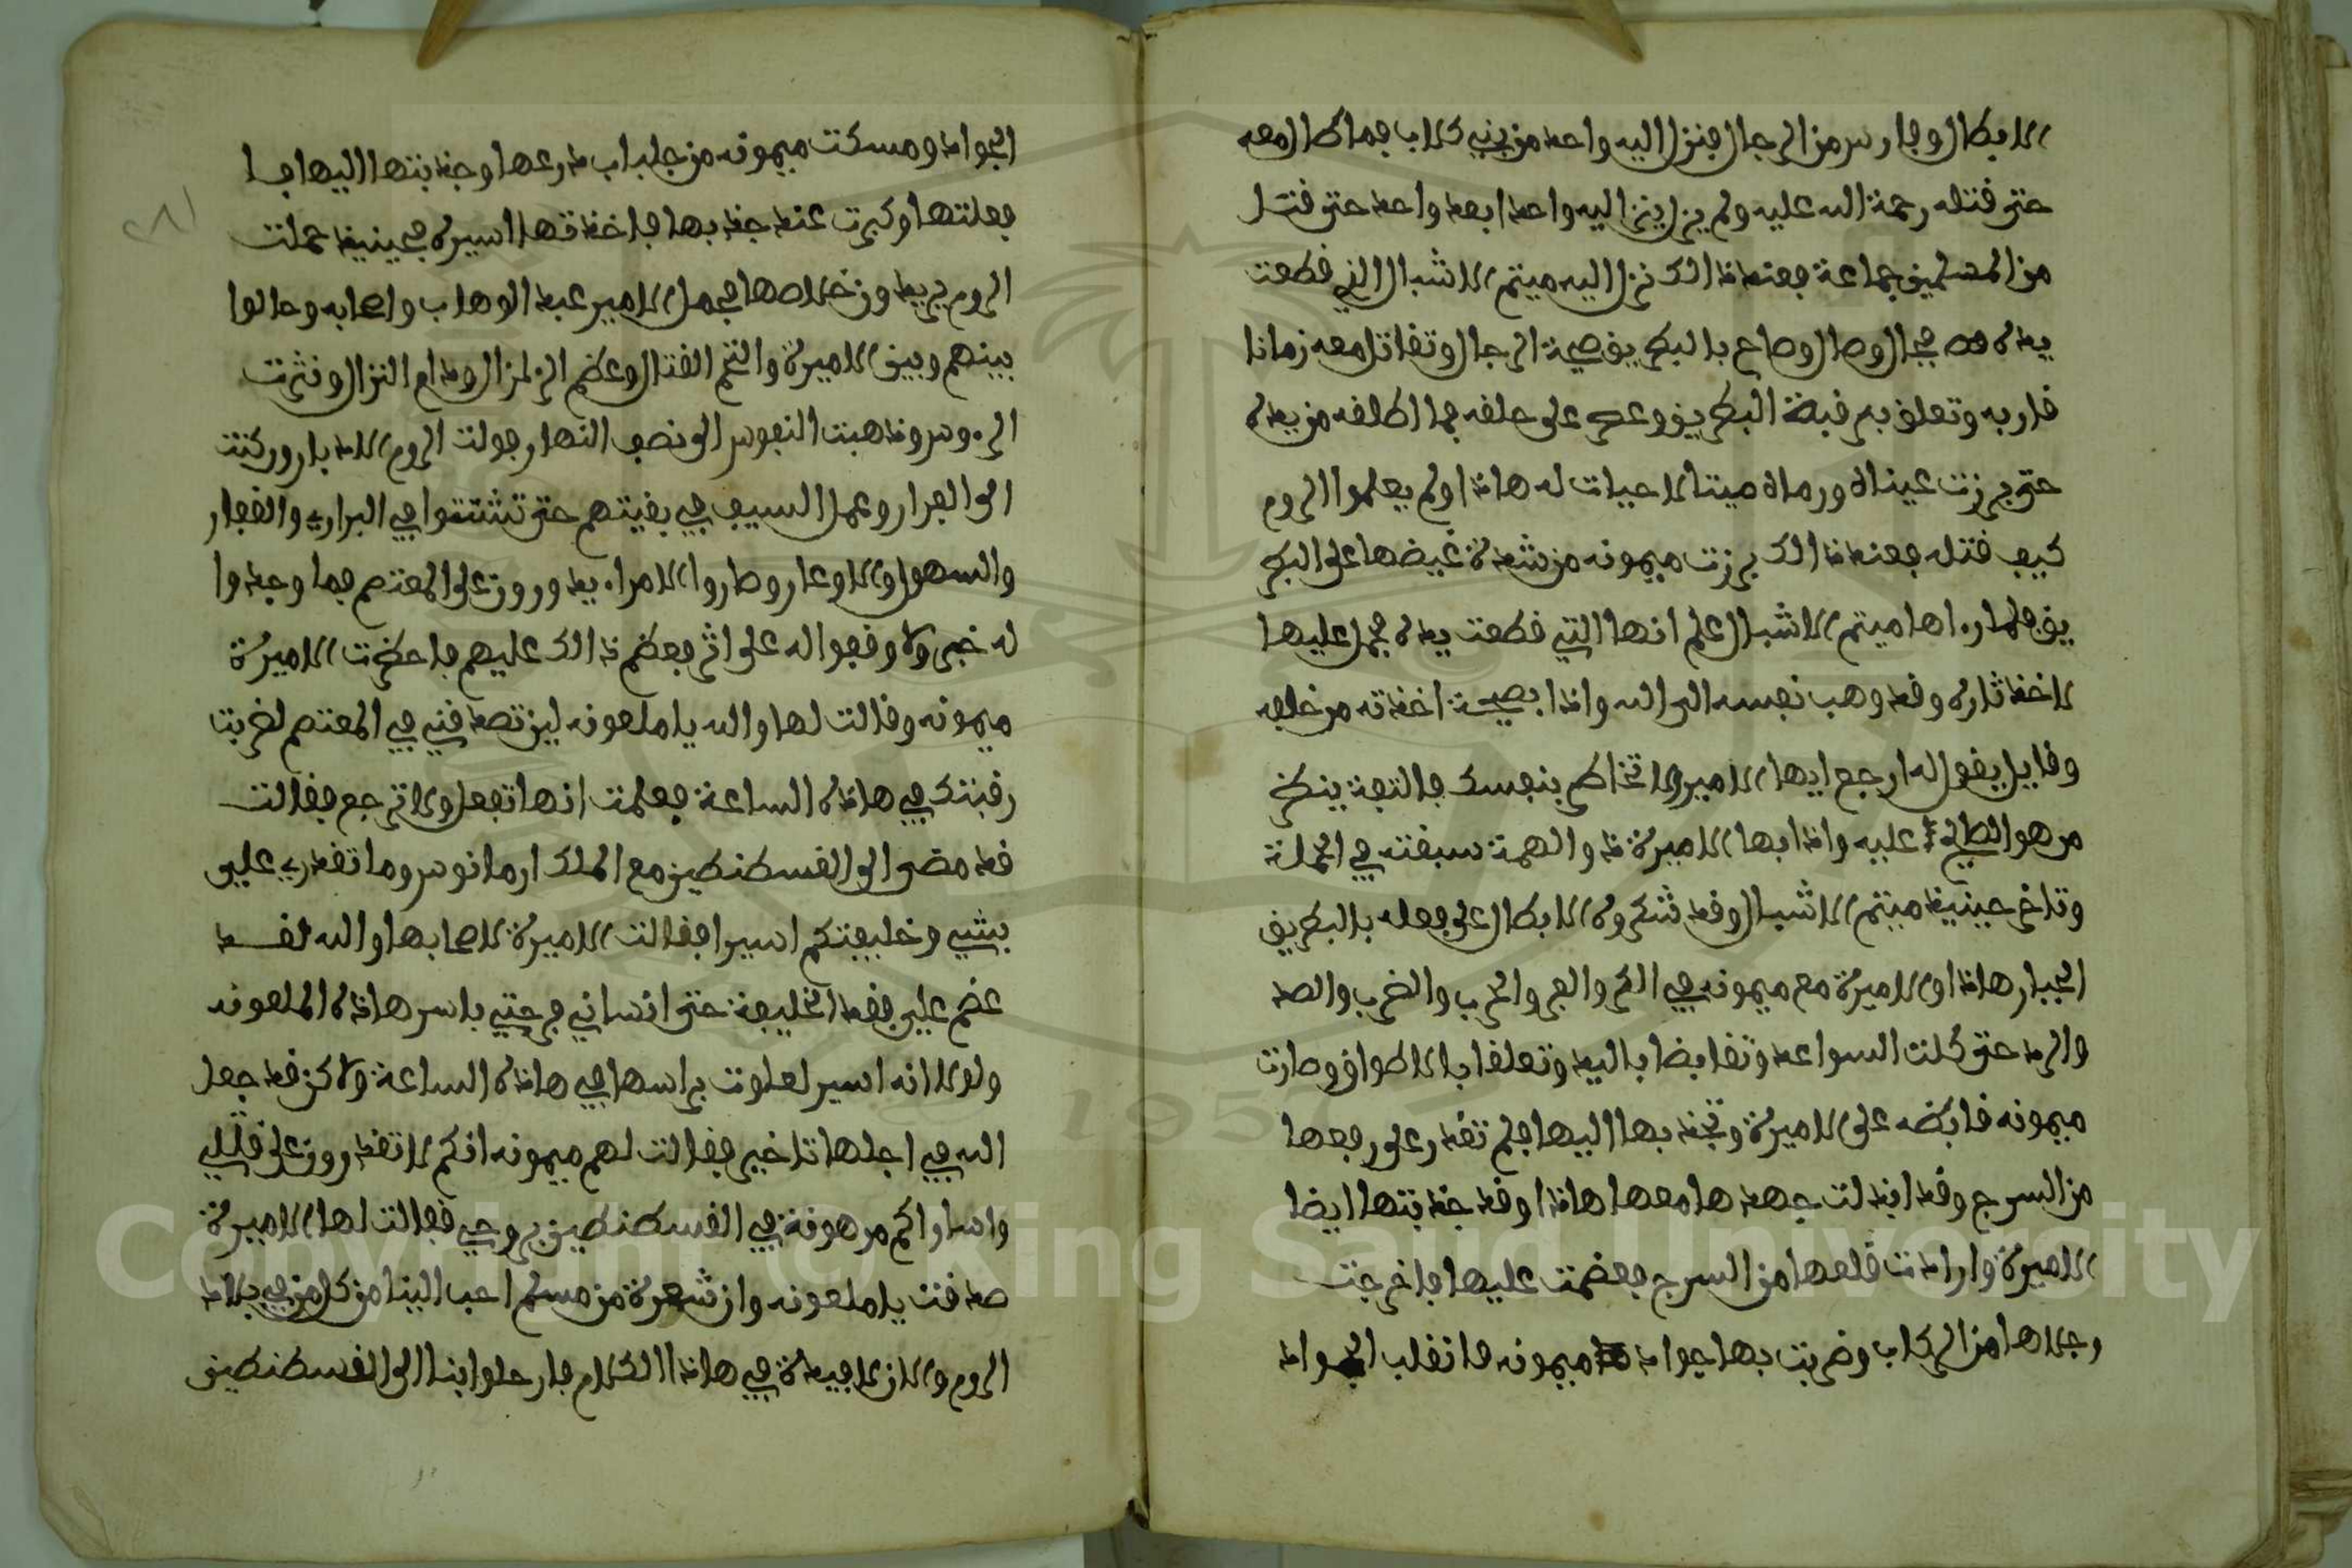 الابطال وفارس من الرجال فنزل اليه واحد من بني كلاب فما طال معه
حتى قتله رحمة الله عليه ولم يزل ينزل اليه واحدا بعد واحد حتى قتل
من المسلمين جماعة فعند ذالك نزل اليه ميتم الاشبال الذي قطعت
يده فجال وصال وصاح بالبطريق صيحة الرجال وتقاتل معه زمانا
قاربه وتعلق به رقبة البطريق وعصر على حلقه فما اطلقه من يده
حتى برزت عيناه ورماه ميتا لا حيات له هاذا ولم يعلموا الروم
كيف قتله فعند ذالك برزت ميمونه من شدة غيضها على البطر
يق فلما راها ميتم الاشبال علم انها التي قطعت يده فحمل عليها
لاخذ ثاره وقد وهب نفسه الى الله واذا بصيحة اخذته من خلفه
وقايل يقول له ارجع ايها الامير ولا تخاطر بنفسك فالتفت ينظر
من هو الطالع عليه واذا بها الاميرة ذو الهمة سبقته في الحملة
وتاخر حينيذ ميتم الاشبال وقد شكروه الابطال على فعله بالبطريق
الجبار هاذا والاميرة مع ميمونه في الكر والفر والحرب والضرب والصد
والرد حتى كلت السواعد وتقابضا باليد وتعلقا بالاطواق وصارت
ميمونه قابضه على الاميرة وتجذبها اليها فلم تقدر على رفعها
من السرج وقد ابذلت جهدها معها هاذا وقد جذبتها ايضا
الاميرة وارادت قلعها من السرج فعضمت عليها فاخرجت
رجلاها من الركاب وضربت بها جواد ميمونه فانقلب الجواد
الجواد ومسكت ميمونه من جلباب درعها وجذبتها اليها فا
فعلتها وكبرت عند جذبها فاخذتها اسيره فحينيذ حملت
الروم يريدون خلاصها فحمل الامير عبد الوهاب واصحابه وحالوا
بينهم وبين الاميرة والتحم القتال وعظم الزلزال ودام النزال ونثرت
الروس وذهبت النفوس الى نصف النهار فولت الروم الادبار وركنت
الى الفرار وعمل السيف في بقيتهم حتى تشتتوا في البراري والقفار
والسهول والاوعار وصاروا الامراء يدورون على المعتصم فما وجدوا
له خبر ولا وقعوا له على اثر فعظم ذالك عليهم فاحضرت الاميرة
ميمونه وقالت لها والله يا ملعونه لين تصدقني في المعتصم لضربت
رقبتك في هاذه الساعة فعلمت انها تفعل ولا ترجع فقالت
قد مضى الى القسطنطين مع الملك ارمانوس وما تقدري علي
بشي وخليفتكم اسيرا فقالت الاميرة لاصحابها والله لقد
عضم علي فقد الخليفة حتى انساني فرحتي باسر هاذه الملعونه
ولولا انه اسير لعلوت براسها في هاذه الساعة ولاكن قد جعل
الله في اجلها تاخير فقالت لهم ميمونه انكم لا تقدرون على قتلي
واساراكم مرهونة في القسطنطين بروحي فقالت لها الاميرة
صدقت يا ملعونه وان شعرة من مسلم احب الينا من كل من في بلاد
الروم والان لا فيدة في هاذا الكلام فارحلوا بنا الى القسطنطين